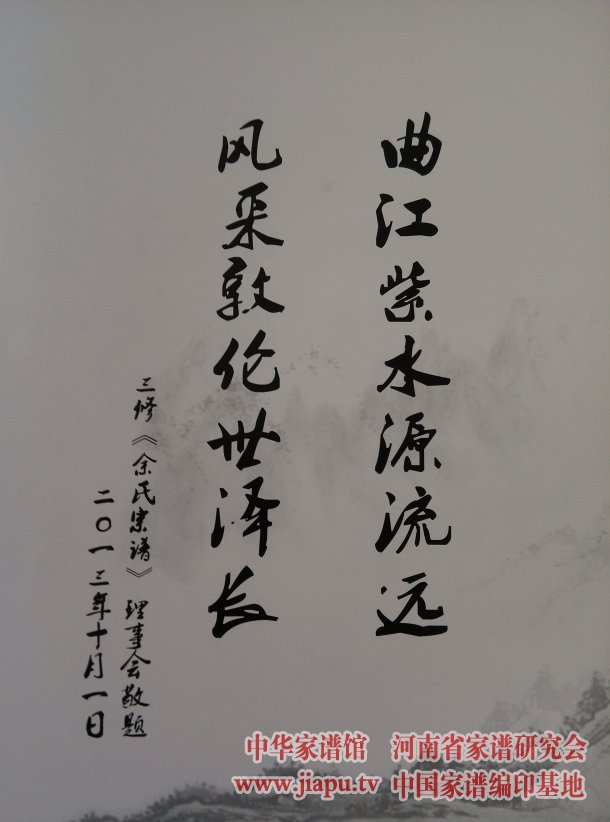 曲江紫水源流远
风采敦伦世泽长
三修《余氏宗谱》理事会敬题
二〇一三年十月一日
中华家谱馆 河南省家谱研究会
www.jiapu.tv 中国家谱编印基地